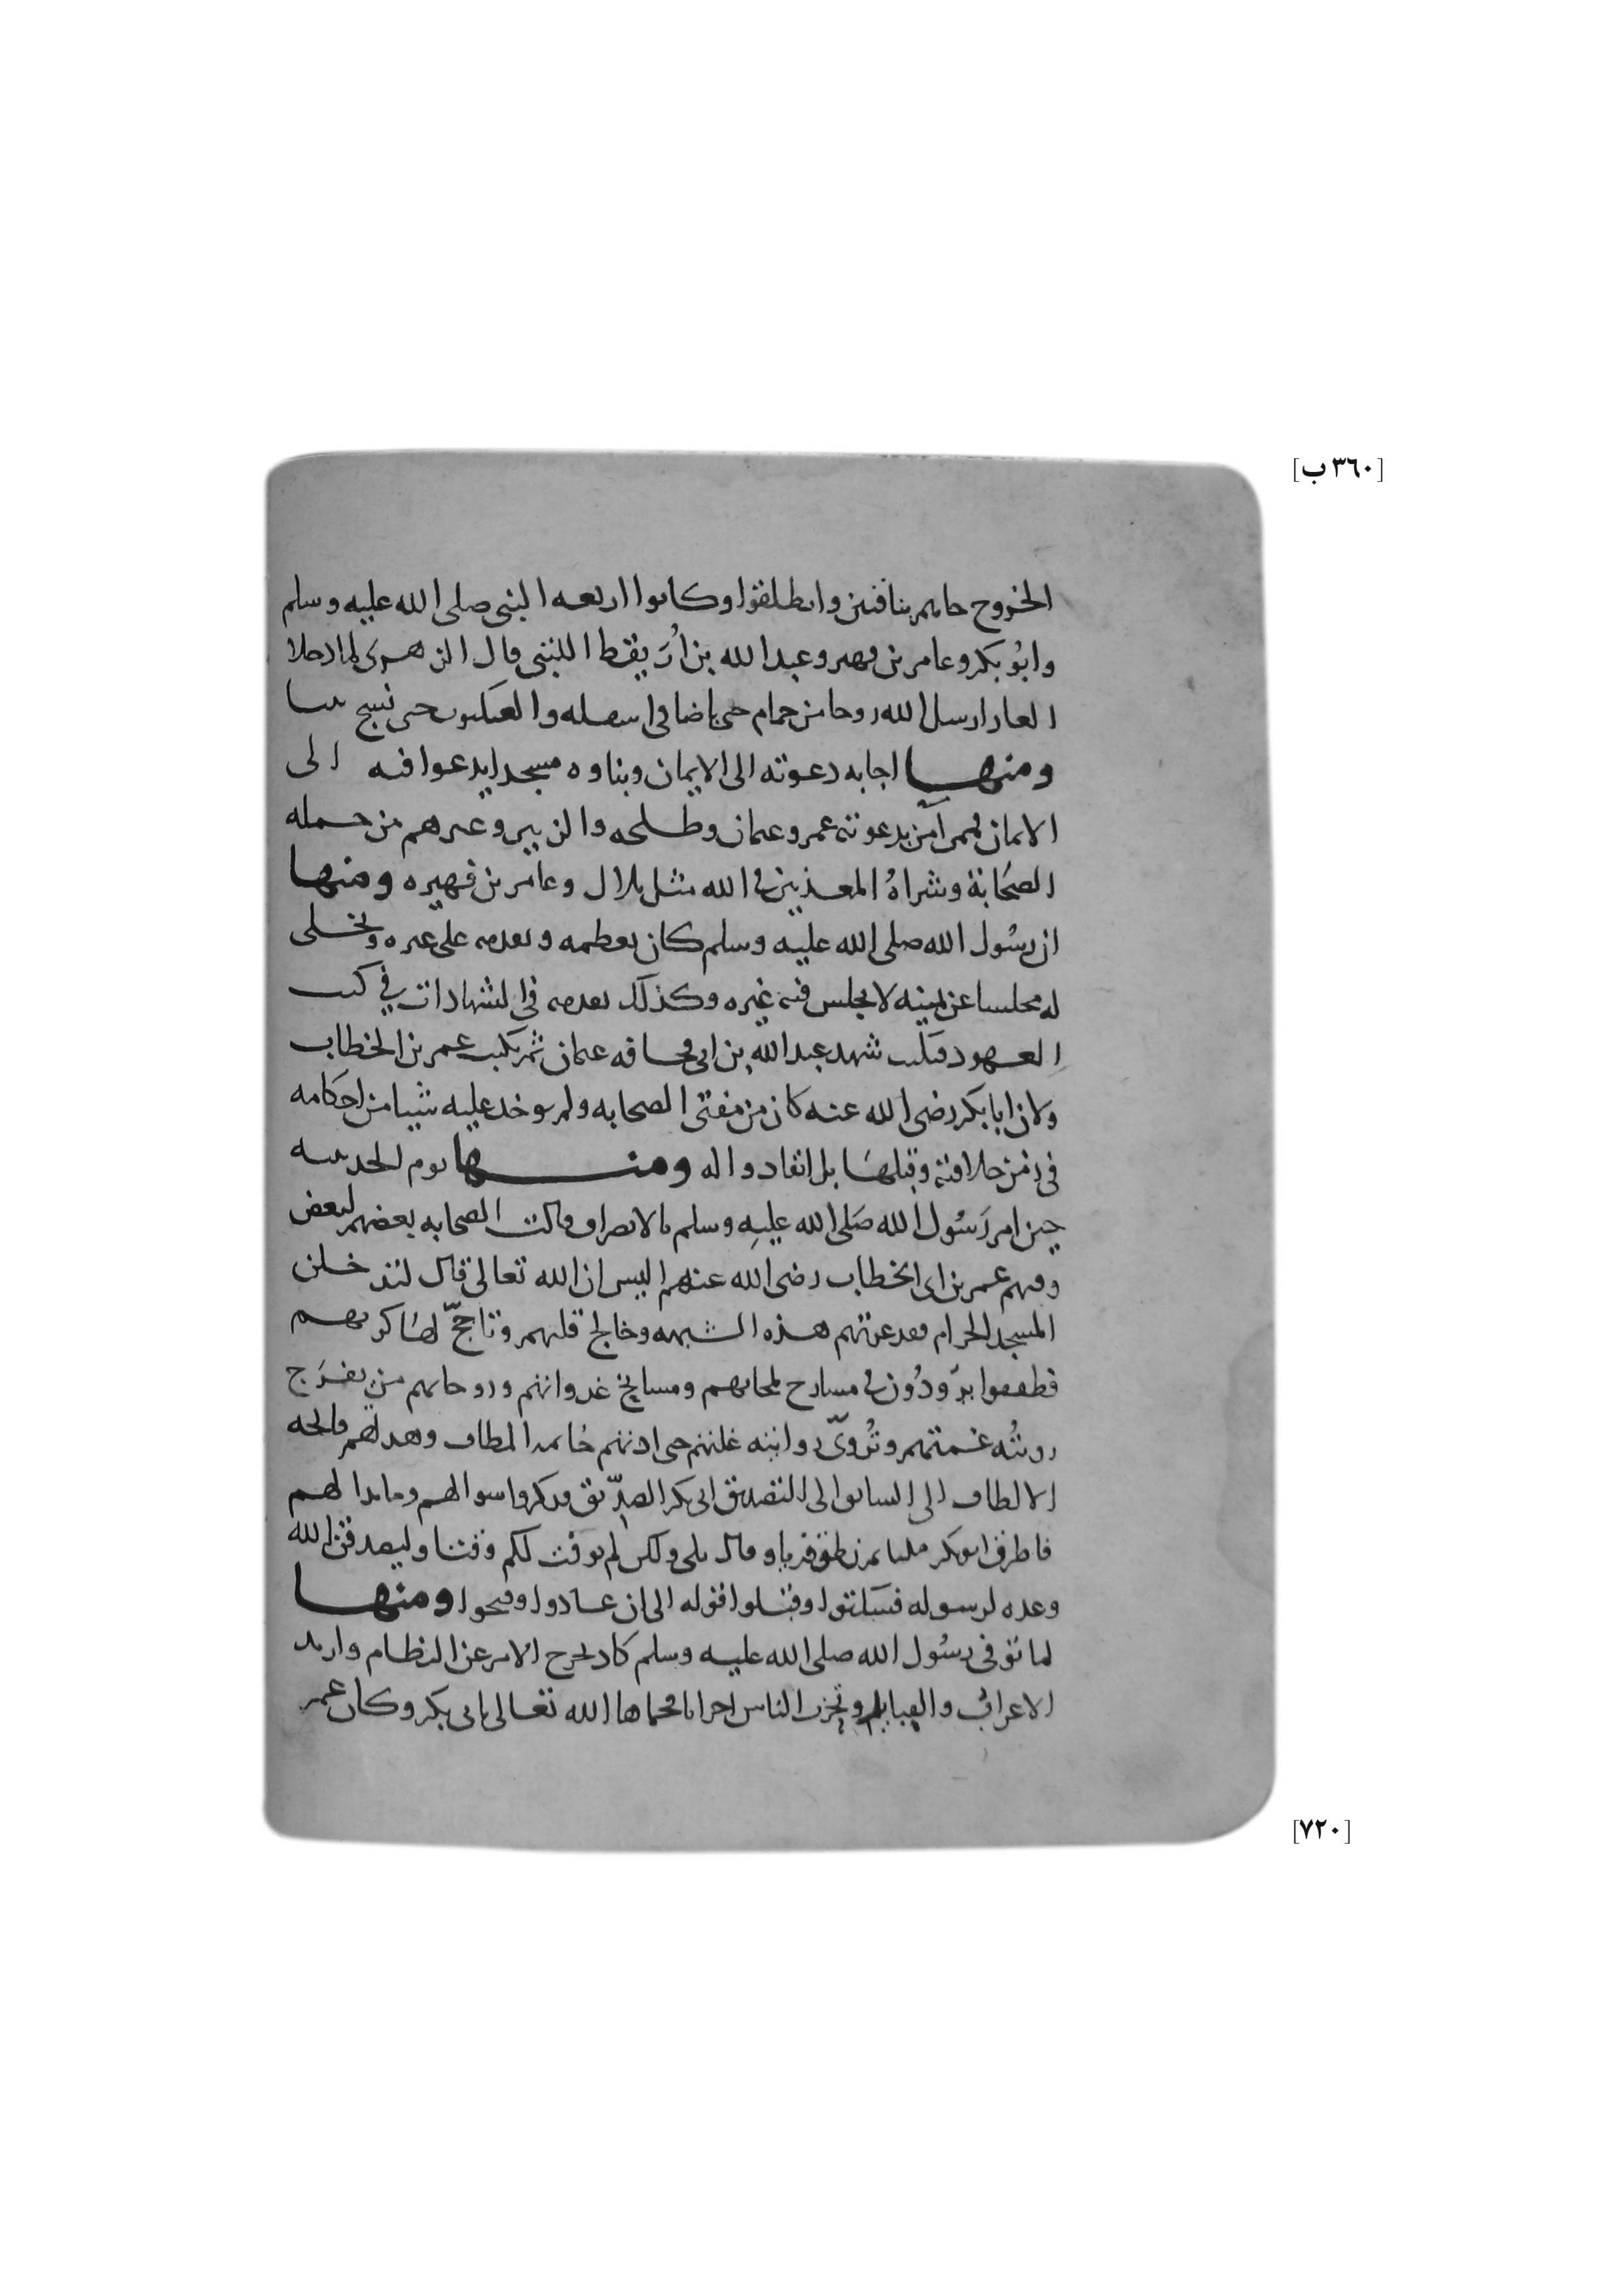 [٣٦٠ ب]
الخروج جاءهم بناقتين وانطلقوا وكانوا اربعه النبي صلى الله عليه وسلم
وابو بكر وعامر بن فهيره وعبد الله بن اريقط الليثي قال الزهري لما دخلا
الغار ارسل الله زوجا من حمام حتى باضا في اسفله والعنكبوت حتى نسج بيتا
ومنها اجابه دعوته الى الايمان وبناوه مسجدا يدعوا فيه الى
الايمان فممن آمن بدعوته عمر وعثمان وطلحه والزبير وغيرهم من جمله
الصحابة وشراه المعذبين في الله مثل بلال وعامر بن فهيره ومنها
ان رسول الله صلى الله عليه وسلم كان يعظمه ويقدمه على غيره ويخلى
له مجلسا عن يمينه لا يجلس فيه غيره وكذلك يقدمه في الشهادات في كتب
العهود فيكتب شهد عبد الله بن ابي قحافه عثمان ثم يكتب عمر بن الخطاب
ولان ابا بكر رضي الله عنه كان من مفتي الصحابه ولم يوخذ عليه شيا من احكامه
في زمن خلافته وقبلها بل انقادوا له ومنها يوم الحديبيه
حين امر رسول الله صلى الله عليه وسلم بالانصراف قالت الصحابه بعضهم لبعض
وفيهم عمر بن الخطاب رضي الله عنهم اليس ان الله تعالى قال لتدخلن
المسجد الحرام فقد عرتهم هذه الشبهه وخالج قلبهم وتاجج لها كربهم
فطفقوا يرودون في مسارح ومسايح غدواتهم وروحاتهم من يفرج
رويته غمتهم وتروي روايته غلتهم حتى ادتهم خاتمه المطاف وهدتهم فاتحه
الالطاف الى الى التصديق ابي بكر الصديق فذكروا سوالهم وما بدا لهم
فاطرق ابو بكر مليا ثم نطق وقال بلى ولكن لم يوقت لكم وقتا وليصدقن الله
وعده لرسوله فسكتوا وقبلوا قوله الى ان عادوا وفتحوا ومنها
لما توفي رسول الله صلى الله عليه وسلم كاد يخرج الامر عن النظام وارتد
الاعراب والقبايل وتحزب الناس احزابا فمحاها الله تعالى بابي بكر وكان عمر
[٧٢٠]